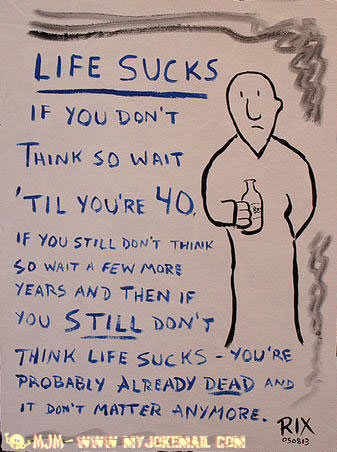 LIFE SUCKS
IF YOU DON'T
THINK SO WAIT
'TIL YOU'RE 40.
IF YOU STILL DON'T THINK
SO WAIT A FEW MORE
YEARS AND THEN IF
YOU STILL DON'T
THINK LIFE SUCKS - YOU'RE
PROBABLY ALREADY DEAD AND
IT DON'T MATTER ANYMORE.
RIX
050813
MJM - WWW.MYJOKEMAIL.COM